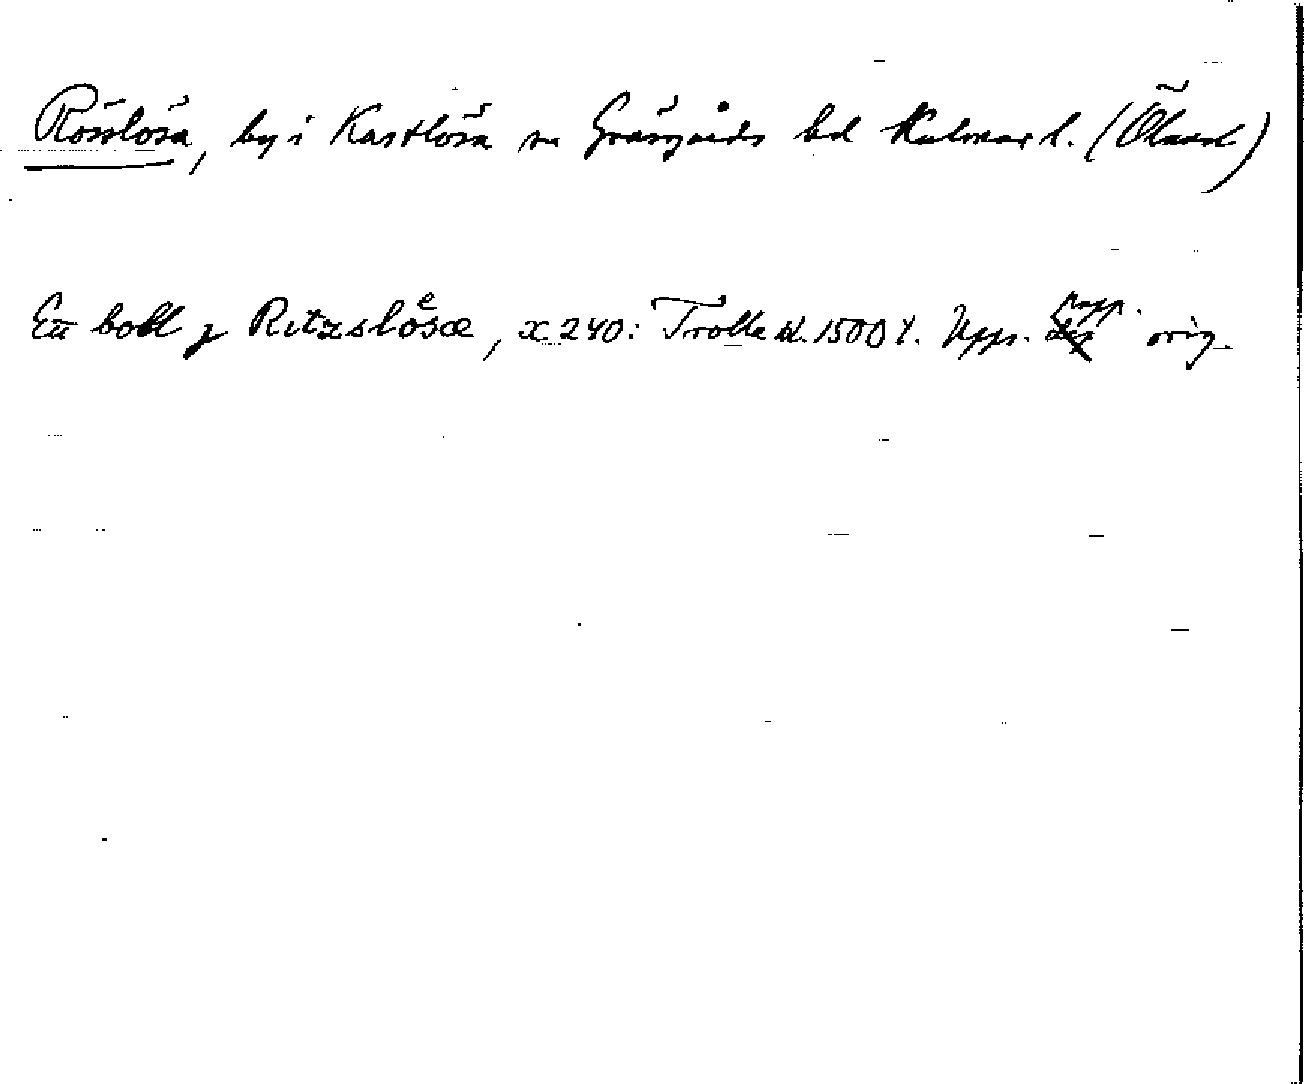 Rösslösa, by i Kastlösa sn Gräsgårds hd Kalmar l. (Öland)
En boll j Ritzsloͤsæ, x 240: Trolle kl. 1500 t. Upps. papp. orig.